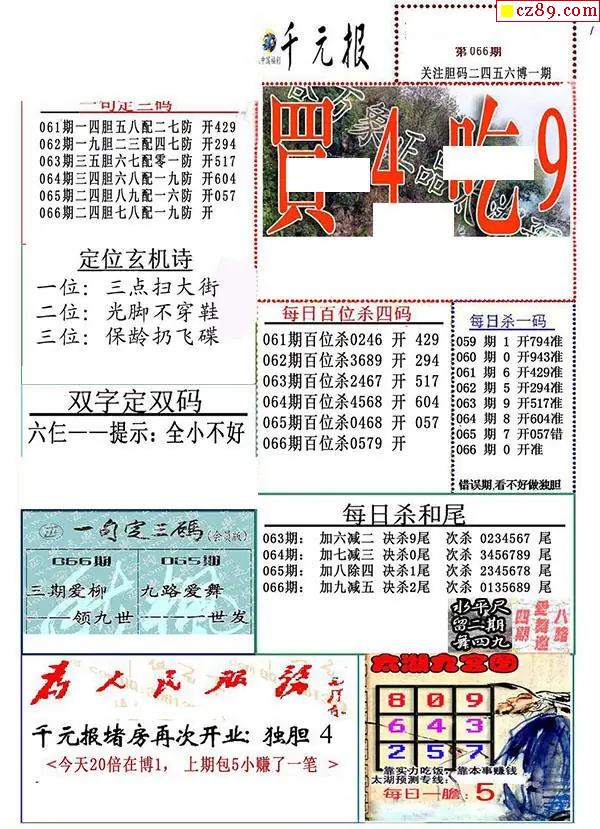 cz89.com
千元报
第066期
关注胆码二四五六博一期
一句定三码
061期一四胆五八配二七防 开429
062期一九胆二三配四七防 开294
063期三五胆六七配零一防 开517
064期三四胆六八配一九防 开604
065期二四胆八九配一六防 开057
066期二四胆七八配一九防 开
買4吃9
定位玄机诗
一位：三点扫大街
二位：光脚不穿鞋
三位：保龄扔飞碟
每日百位杀四码
061期百位杀0246 开 429
062期百位杀3689 开 294
063期百位杀2467 开 517
064期百位杀4568 开 604
065期百位杀0468 开 057
066期百位杀0579 开
每日杀一码
059 期 1 开794准
060 期 0 开943准
061 期 6 开429准
062 期 5 开294准
063 期 9 开517准
064 期 8 开604准
065 期 7 开057错
066 期 0 开准
错误期,看不好做独胆
双字定双码
六仨——提示：全小不好
一句定三碼(会员版)
066期 065期
三期爱柳 九路爱舞
——领九世 ————世发
每日杀和尾
063期： 加六减二 决杀9尾 次杀 0234567 尾
064期： 加七减三 决杀0尾 次杀 3456789 尾
065期： 加八除四 决杀1尾 次杀 2345678 尾
066期： 加九减五 决杀2尾 次杀 0135689 尾
水平尺
留二期
舞四九
八路
爱舞邀
四期
为人民服务
千元报堵房再次开业：独胆 4
<今天20倍在博1， 上期包5小赚了一笔 >
太湖九宫图
8 0 9
6 4 3
2 5 7
靠实力吃饭 靠本事赚钱
太湖预测专线:
每日一胆: 5